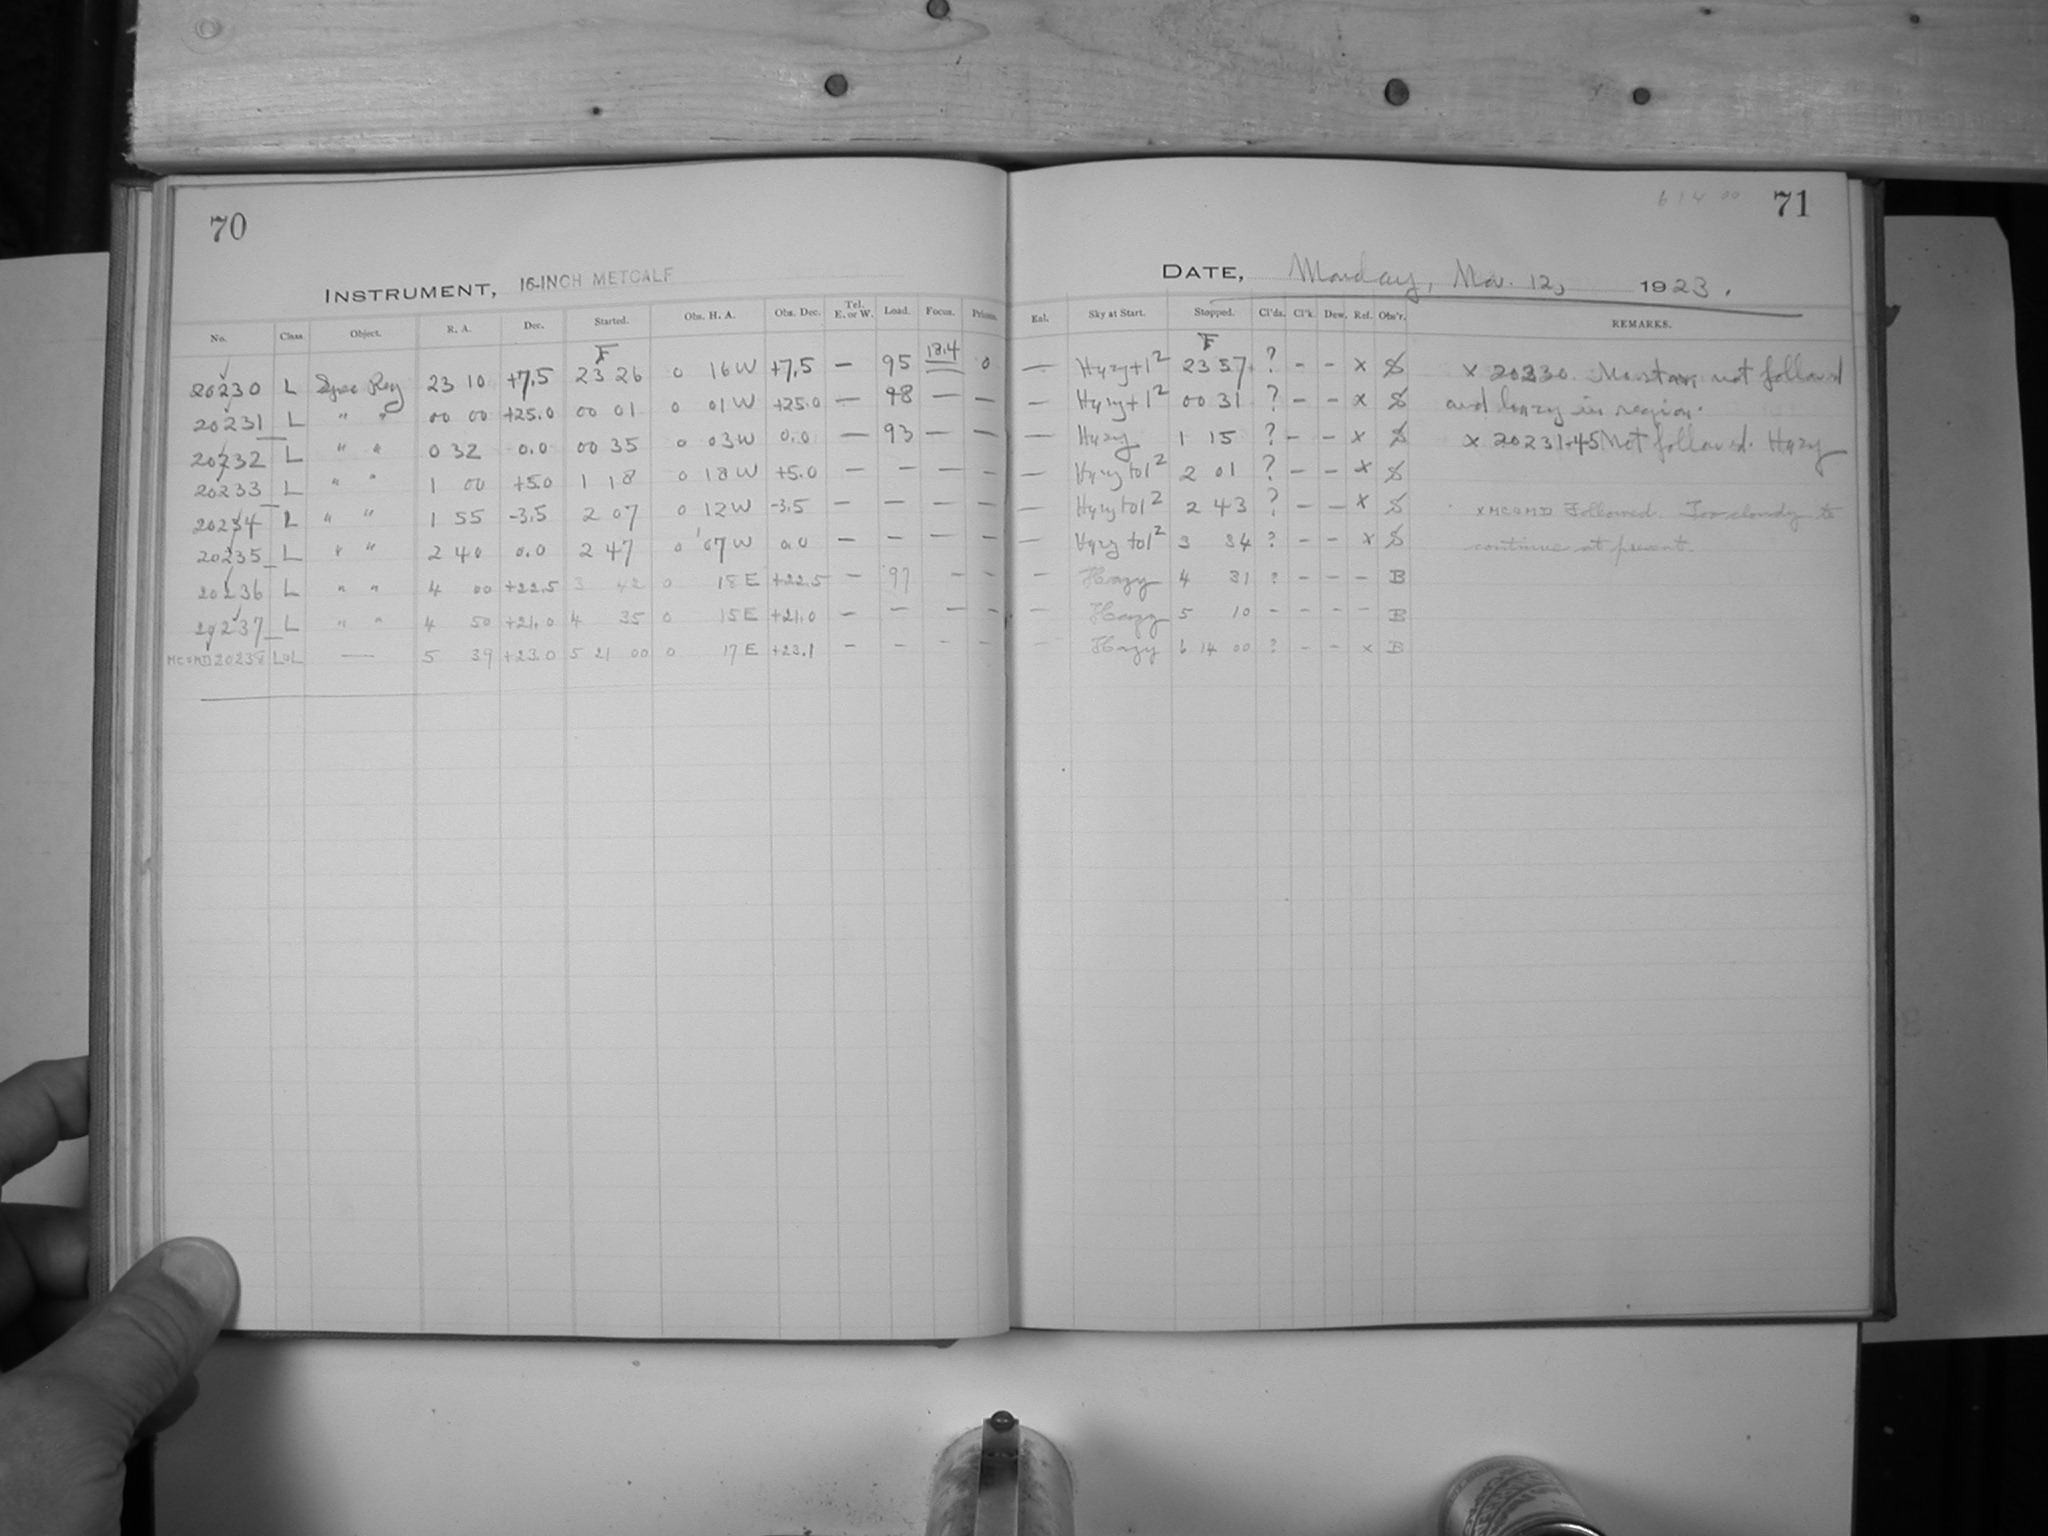 70
INSTRUMENT, 16-INCH METCALF
No. Class Object. R. A. Dec. Started. Obs. H. A. Obs. Dec. Tel. E. or W. Load. Focus. Prisms.
F
20230 L Spec Reg 23 10 +7.5 23 26 0 16 W +7.5 — 95 13.4 0
20231 L " " 00 00 +25.0 00 01 0 01 W +25.0 — 98 — —
20232 L " " 0 32 0.0 00 35 0 03 W 0.0 — 93 — —
20233 L " " 1 00 +5.0 1 18 0 18 W +5.0 — — — —
20234 L " " 1 55 -3.5 2 07 0 12 W -3.5 — — — —
20235 L " " 2 40 0.0 2 47 0 07 W 0.0 — — — —
20236 L " " 4 00 +22.5 3 42 0 18 E +22.5 — 97 — —
20237 L " " 4 50 +21.0 4 35 0 15 E +21.0 — — — —
MC&MD 20238 L&L — 5 39 +23.0 5 21 00 0 17 E +23.1 — — — —
6 14 00 71
DATE, Monday, Mar. 12, 1923.
Eal. Sky at Start. Stopped. Cl'ds. Cl'k. Dew. Ref. Obs'r. REMARKS.
F
— Hazy+1² 23 57 ? — — x S x 20230. Mostar not followed
— Hazy+1² 00 31 ? — — x S and hazy in region.
— Hazy 1 15 ? — — x S x 20231-45 Not followed. Hazy
— Hazy to 1² 2 01 ? — — x S
— Hazy to 1² 2 43 ? — — x S x MC&MD Followed. Too cloudy to
— Hazy to 1² 3 34 ? — — x S continue at present.
— Hazy 4 31 ? — — — B
— Hazy 5 10 — — — — B
— Hazy 6 14 00 ? — — x B